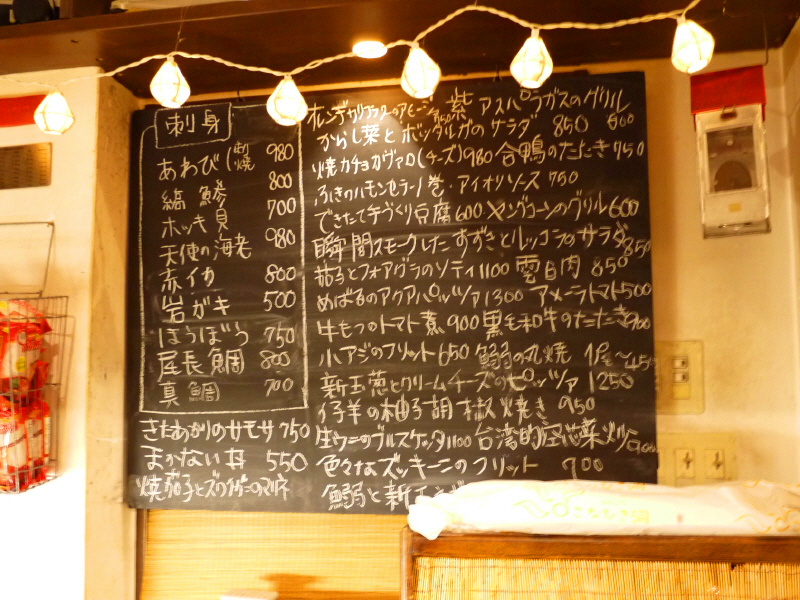 刺身
あわび(刺 焼 980
縞鯵 800
ホッキ貝 700
天使の海老 980
赤イカ 800
岩ガキ 500
ほうぼう 750
尾長鯛 800
真鯛 700
きたあかりのサモサ 750
まかない丼 550
焼茄子とズワイガニのマリネ
紫アスパラガスのグリル 800
からし菜とボッタルガのサラダ 850
焼カチョカヴァロ(チーズ) 980 合鴨のたたき 750
ふきのハモンセラーノ巻・アイオリソース 750
できたて手づくり豆腐 600・ヤングコーンのグリル 600
瞬間スモークしたすずきとルッコラのサラダ 850
茄子とフォアグラのソティ 1100 雲白肉 850
めばるのアクアパッツァ 1300 アメーラトマト 500
牛もつのトマト煮 900 黒毛和牛のたたき 900
小アジのフリット 650 鰯の丸焼 1尾〜450
新玉葱とクリームチーズのピッツァ 1250
仔羊の柚子胡椒焼き 950
生ウニのブルスケッタ 1100 台湾的
色々なズッキーニのフリット 900
鰯と新玉ネギ